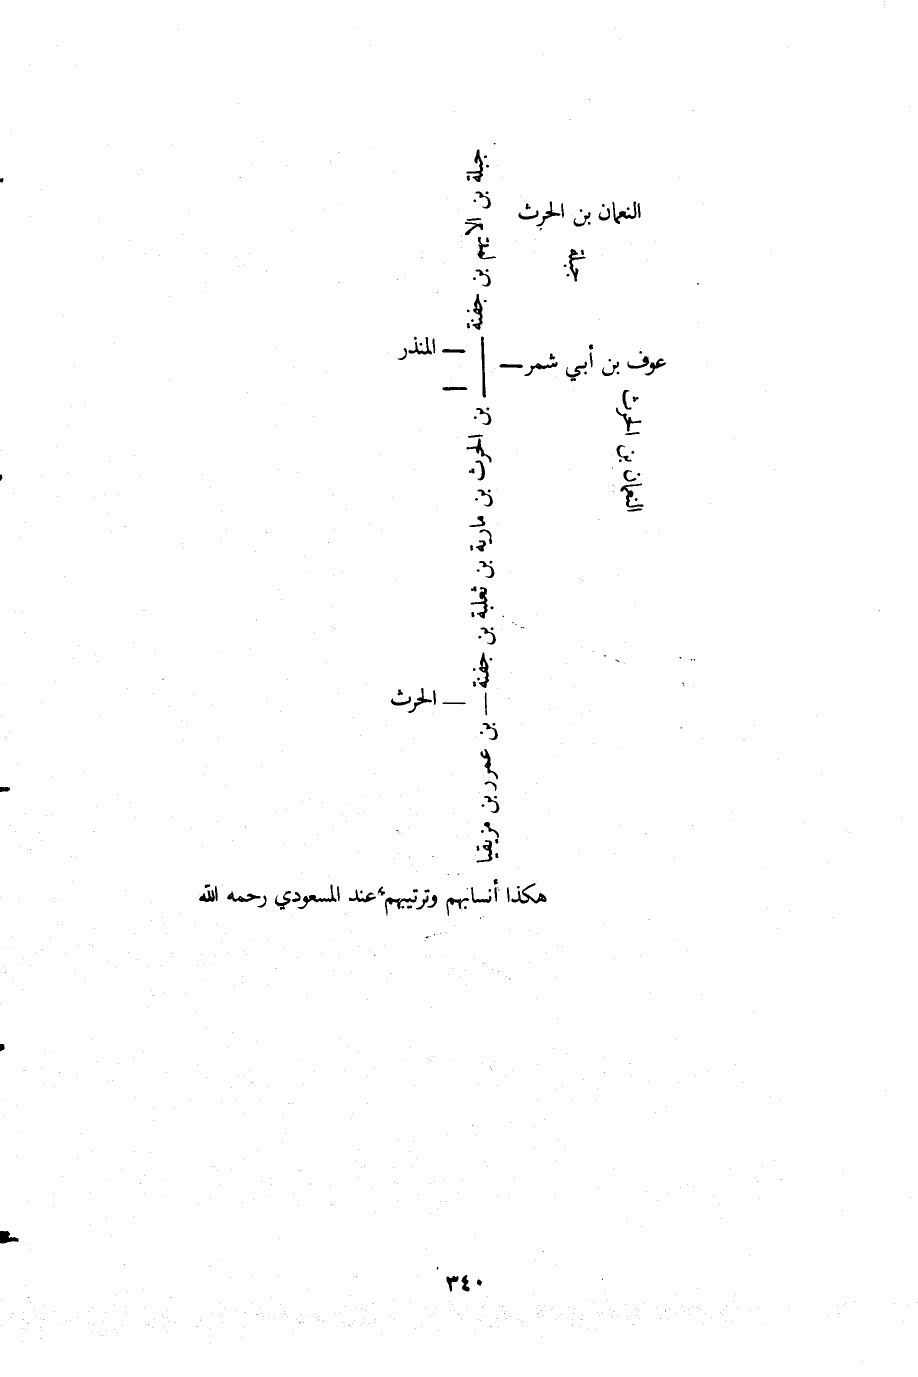 جبلة بن الايهم بن جفنة
بن الحرث بن مارية بن ثعلبة بن جفنة
بن عمرر بن مزيقيا
النعمان بن الحرث
جبلة
عوف بن أبي شمر
النعمان بن الحرث
المنذر
الحرث
هكذا أنسابهم وترتيبهم عند المسعودي رحمه الله
٣٤٠